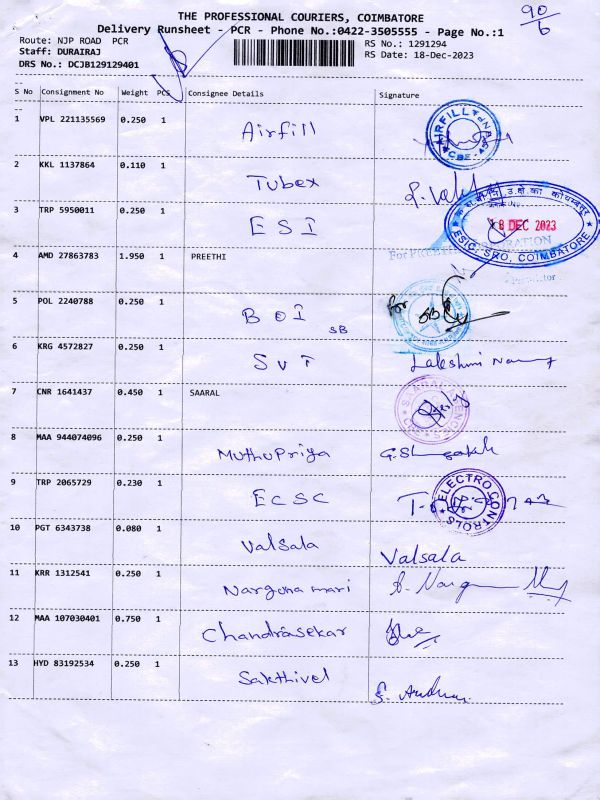 90
6
THE PROFESSIONAL COURIERS, COIMBATORE
Delivery Runsheet - PCR - Phone No.:0422-3505555 - Page No.:1
Route: NJP ROAD PCR
RS No.: 1291294
Staff: DURAIRAJ
RS Date: 18-Dec-2023
DRS No.: DCJB129129401
S No Consignment No Weight PCS Consignee Details Signature
1 VPL 221135569 0.250 1 Airfill
AIRFILL
CBE
2 KKL 1137864 0.110 1 Tubex
3 TRP 5950011 0.250 1 ESI
18 DEC 2023
ESIC, SRO, COIMBATORE
4 AMD 27863783 1.950 1 PREETHI
5 POL 2240788 0.250 1 BOI SB for
6 KRG 4572827 0.250 1 SVT Lakshmi
7 CNR 1641437 0.450 1 SAARAL
8 MAA 944074096 0.250 1 MuthuPriya
9 TRP 2065729 0.230 1 ECSC
ELECTRO CONTROLS
10 PGT 6343738 0.080 1 Valsala Valsala
11 KRR 1312541 0.250 1 Nargonamari
12 MAA 107030401 0.750 1 Chandrasekar
13 HYD 83192534 0.250 1 Sakthivel